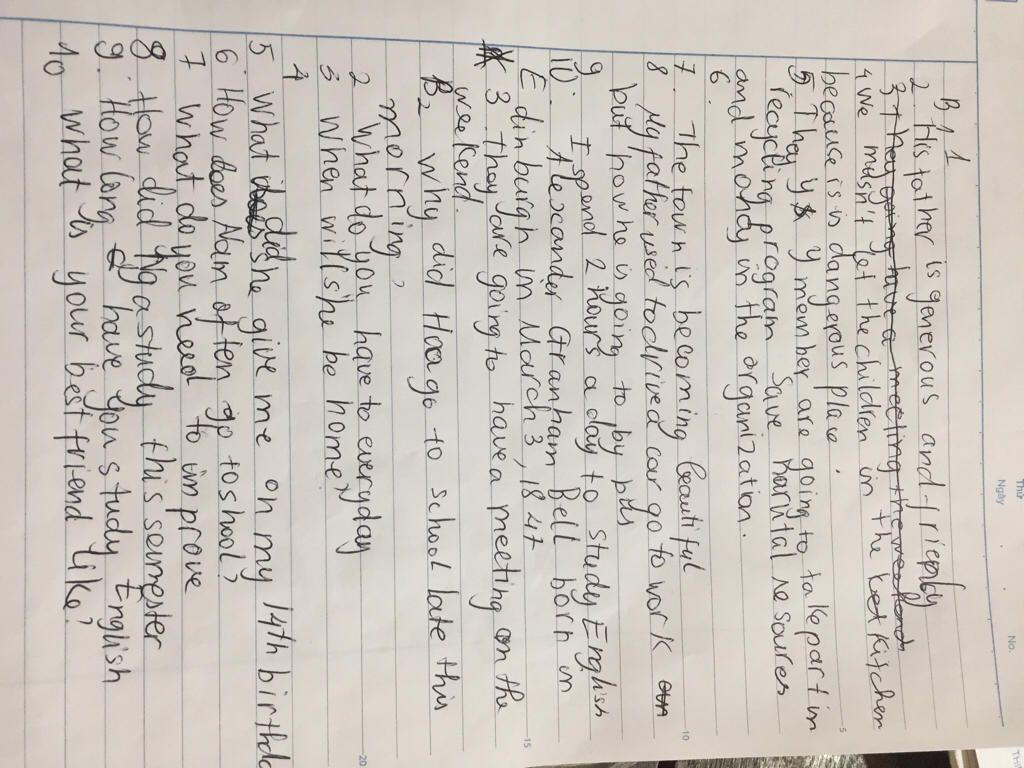 Thứ
Ngày
No.
B 1
2 His father is generous and friendly
3 They going have a meeting the weekend
4 we musn't let the children in the ket kitchen
because is is dangerous place.
5 They y y member are going to take part in
recycling program save resources
and mondy in the organization.
6.
7. The town is becoming beautiful
8 My father used to drived car go to work
but now he is going to by
9 I spend 2 hours a day to study English
10. Alexander Granham Bell born in
Edinburgh in March 3, 1847
3 They are going to have a meeting on the
weekend.
B2 Why did Hoa go to school late this
morning?
2 What do you have to everyday
3 When will she be home?
4
5 What did she give me on my 14th birthda
6. How does Nam often go to shool?
7 What do you need to improve
8 How did Nga study this semester
9. How long have you study English
10 what is your best friend like?
5
10
15
20